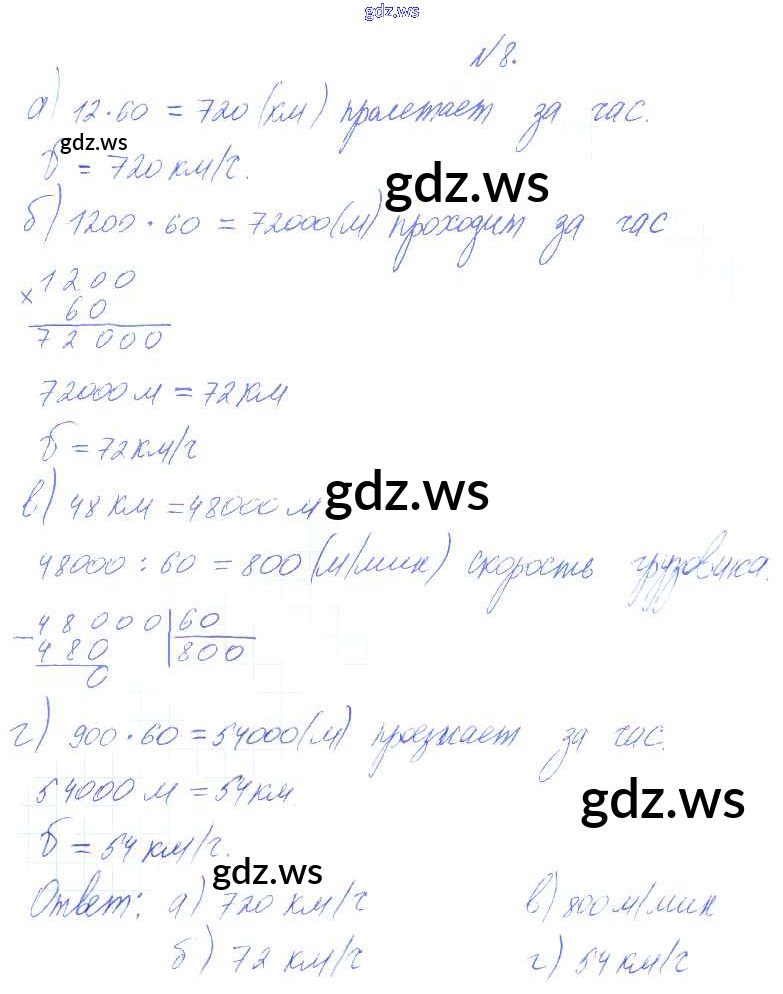 gdz.ws
№8.
а) 12·60 = 720 (км) пролетает за час.
gdz.ws
υ = 720 км/ч.
gdz.ws
б) 1200·60 = 72000(м) проходит за час
× 1200
60
72000
72000 м = 72 км
υ = 72 км/ч
gdz.ws
в) 48 км = 48000 м
48000 : 60 = 800 (м/мин) скорость грузовика.
– 48000 | 60
480 | 800
0
г) 900·60 = 54000(м) проезжает за час.
54000 м = 54 км.
gdz.ws
υ = 54 км/ч.
gdz.ws
Ответ: а) 720 км/ч в) 800 м/мин
б) 72 км/ч г) 54 км/ч